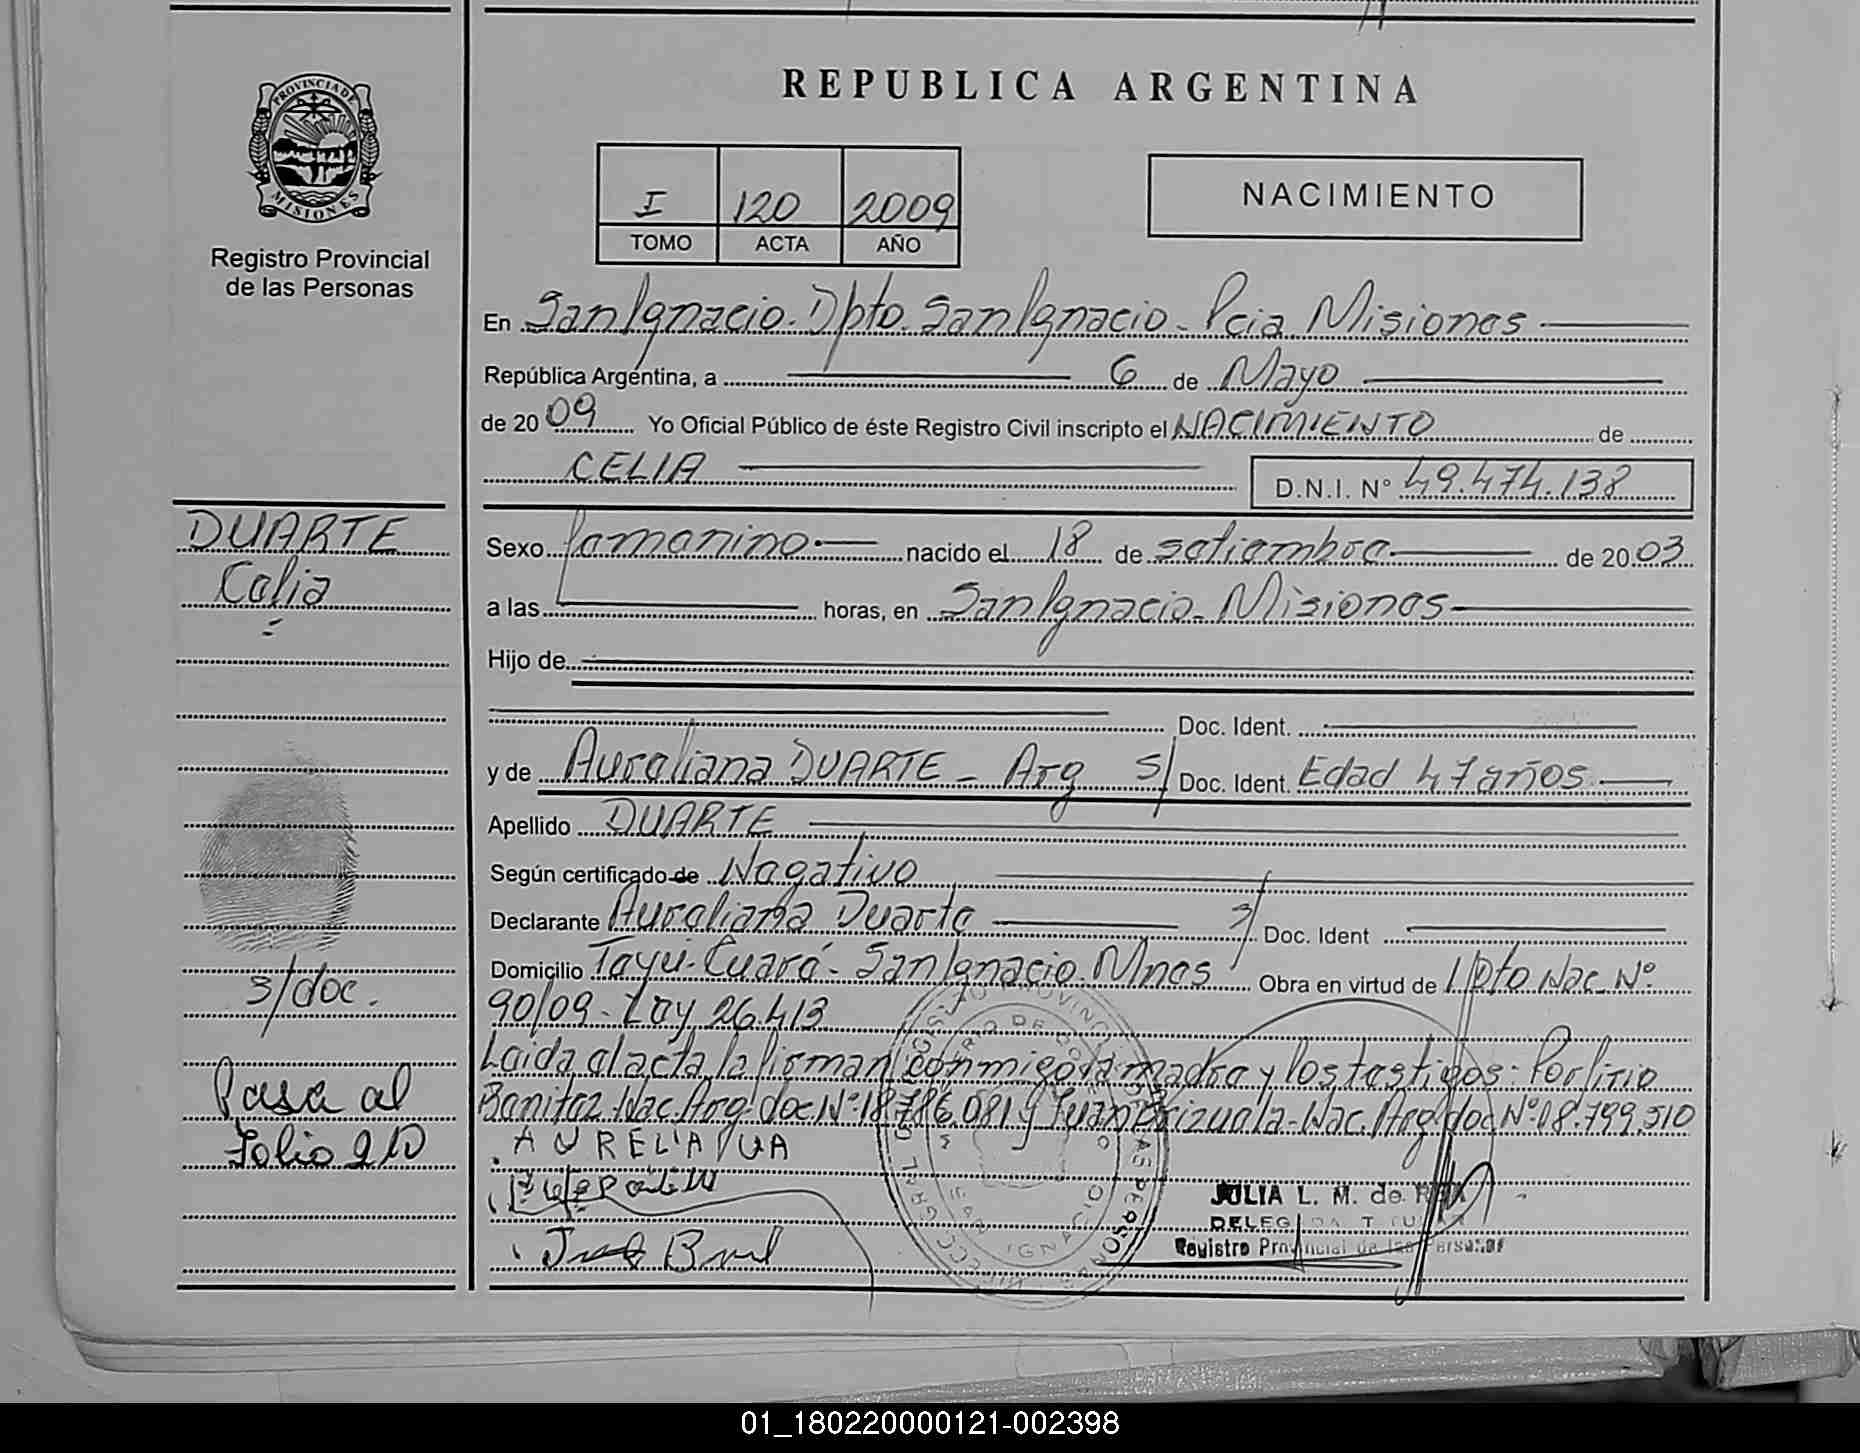 PROVINCIA DE
MISIONES
Registro Provincial
de las Personas
DUARTE
Celia
S/doc.
Pasa al
Folio 210
REPUBLICA ARGENTINA
I 120 2009
TOMO ACTA AÑO
NACIMIENTO
En San Ignacio. Dpto. San Ignacio - Pcia Misiones
República Argentina, a 6 de Mayo
de 2009 Yo Oficial Público de éste Registro Civil inscripto el NACIMIENTO de
CELIA D.N.I. N° 49.474.138
Sexo femenino.- nacido el 18 de setiembre de 2003
a las horas, en San Ignacio - Misiones
Hijo de
Doc. Ident.
y de Aureliana DUARTE - Arg S/ Doc. Ident. Edad 47 años.
Apellido DUARTE
Según certificado de Negativo
Declarante Aureliana Duarte S/ Doc. Ident
Domicilio Tayu-Cuaré - San Ignacio. Mnes Obra en virtud de Dpto Nac. N°
90/09 - Ley 26.413
Leida el acta la firman conmigo la madre y los testigos: Porfirio
Benitez Nac. Arg. doc N° 18.786.081 y Juan Brizuela - Nac. Arg. doc N° 08.799.510
AURELIA UA
JULIA L. M. de
DELEG
Registro Provincial de las Personas
01_180220000121-002398